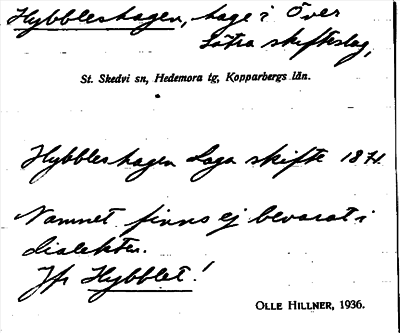 Hybbleshagen, hage i Över
Sätra skifteslag,
St. Skedvi sn, Hedemora tg, Kopparbergs län.
Hybbleshagen Laga skifte 1871.
Namnet finns ej bevarat i
dialekten.
Jfr Hybblet!
OLLE HILLNER, 1936.